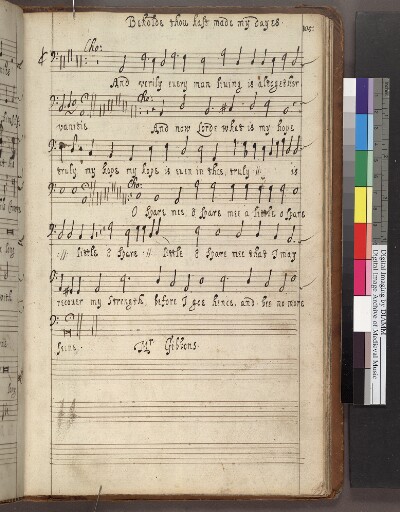 Beholde thou hast made my dayes.
105:
Cho:
And verily euery man liuing is altogether
Cho:
vanitie And now Lorde what is my hope
truly my hope my hope is euen in thee, truly :||: is
Cho:
O Spare mee O Spare mee a little O spare
:||: little O Spare :||: little O Spare mee that I may
recouer my strength before I goe hence, and bee no more
seene. Mr Gibbons.
Digital Imaging by DIAMM
Digital Image Archive of Medieval Music